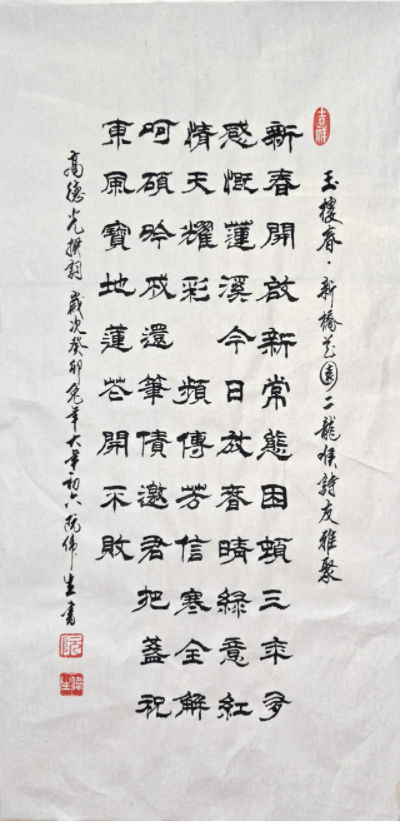 吉祥
玉樓春·新橋花園二龍候詩友雅聚
新春開啟新常態困頓三年多
感慨蓮溪今日放春晴綠意紅
情天耀彩 頻傳芳信寒全解
呵硯吟成還筆債邀君把盞祝
東風寶地蓮花開不敗
高德光撰詞 歲次癸卯兔年大年初六阮偉生書
阮
偉生